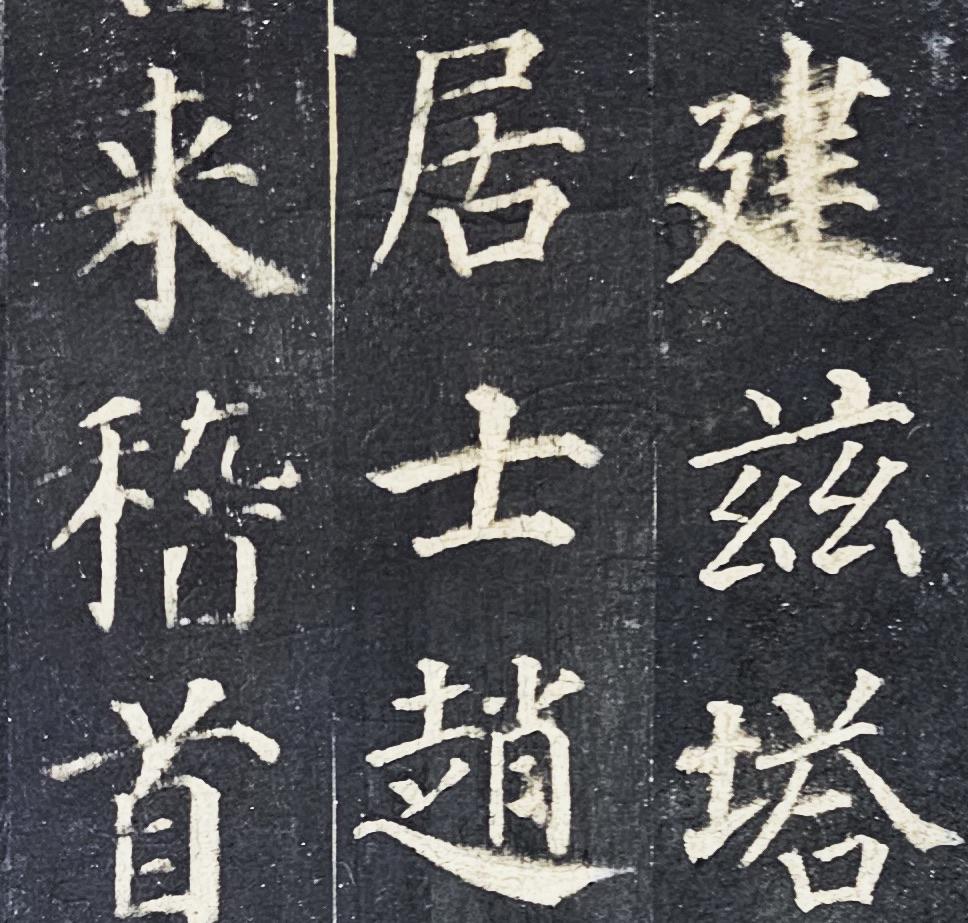 建茲塔
居士趙
来稽首